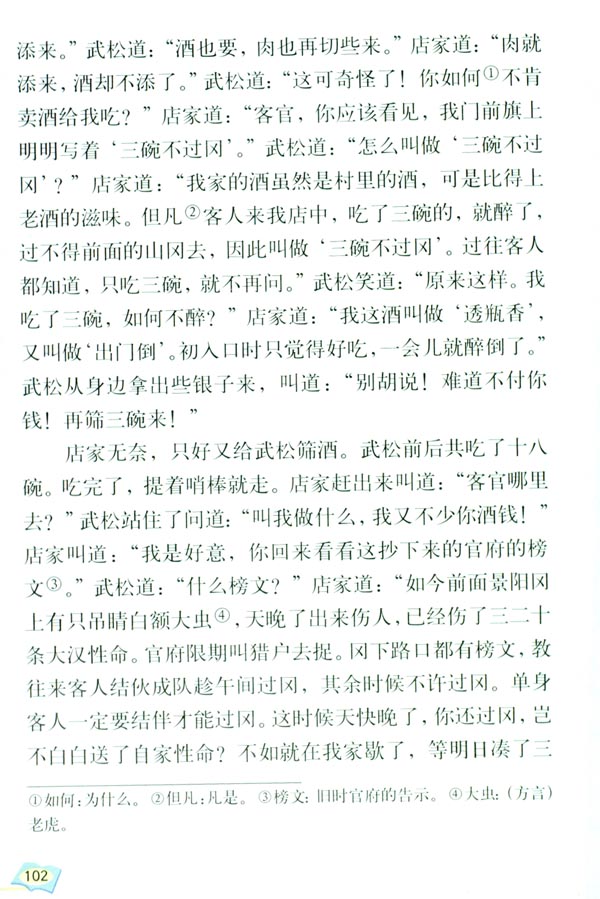 添来。”武松道：“酒也要，肉也再切些来。”店家道：“肉就
添来，酒却不添了。”武松道：“这可奇怪了！你如何①不肯
卖酒给我吃？”店家道：“客官，你应该看见，我门前旗上
明明写着‘三碗不过冈’。”武松道：“怎么叫做‘三碗不过
冈’？”店家道：“我家的酒虽然是村里的酒，可是比得上
老酒的滋味。但凡②客人来我店中，吃了三碗的，就醉了，
过不得前面的山冈去，因此叫做‘三碗不过冈’。过往客人
都知道，只吃三碗，就不再问。”武松笑道：“原来这样。我
吃了三碗，如何不醉？”店家道：“我这酒叫做‘透瓶香’，
又叫做‘出门倒’。初入口时只觉得好吃，一会儿就醉倒了。”
武松从身边拿出些银子来，叫道：“别胡说！难道不付你
钱！再筛三碗来！”
店家无奈，只好又给武松筛酒。武松前后共吃了十八
碗。吃完了，提着哨棒就走。店家赶出来叫道：“客官哪里
去？”武松站住了问道：“叫我做什么，我又不少你酒钱！”
店家叫道：“我是好意，你回来看看这抄下来的官府的榜
文③。”武松道：“什么榜文？”店家道：“如今前面景阳冈
上有只吊睛白额大虫④，天晚了出来伤人，已经伤了三二十
条大汉性命。官府限期叫猎户去捉。冈下路口都有榜文，教
往来客人结伙成队趁午间过冈，其余时候不许过冈。单身
客人一定要结伴才能过冈。这时候天快晚了，你还过冈，岂
不白白送了自家性命？不如就在我家歇了，等明日凑了三
①如何：为什么。 ②但凡：凡是。 ③榜文：旧时官府的告示。 ④大虫：（方言）
老虎。
102